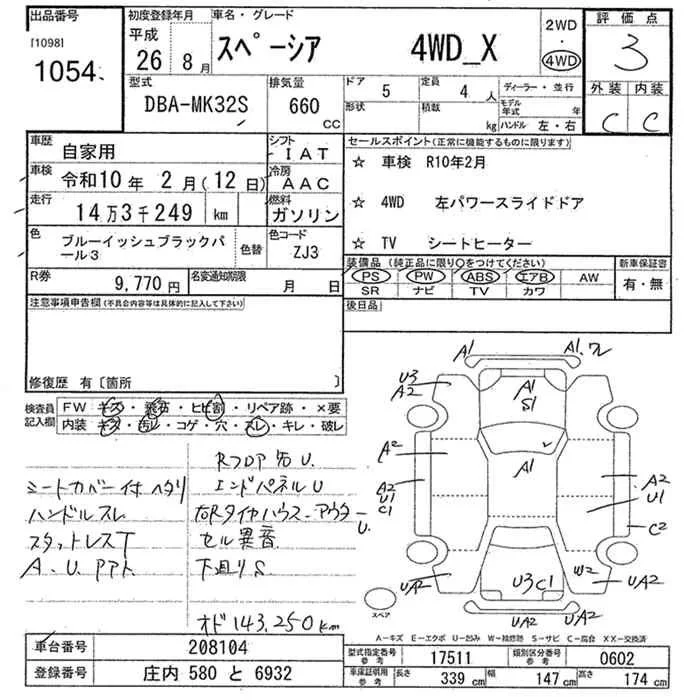 出品番号
[1098]
1054
初度登録年月
平成
26 年 8 月
車名・グレード
スペーシア 4WD_X
2WD
・
4WD
評価点
3
外装 内装
C C
型式
DBA-MK32S
排気量
660
CC
ドア 5
定員 4 人
形状
積載 kg
ディーラー・並行
モデル年式 年
ハンドル 左・右
車歴 自家用
シフト IAT
車検 令和10年 2月(12日)
冷房 AAC
走行 14万3千249 km
燃料 ガソリン
色 ブルーイッシュブラックパール3
色替
色コード ZJ3
R券 9,770円
名変通知期限 月 日
セールスポイント(正常に機能するものに限ります)
☆ 車検 R10年2月
☆ 4WD 左パワースライドドア
☆ TV シートヒーター
装備品 (純正品に限り○をつけてください)
PS PW ABS エアB AW
SR ナビ TV カワ
新車保証書
有・無
後日品
注意事項申告欄(不具合内容等は具体的に記入して下さい)
修復歴 有〔箇所 〕
検査員記入欄
FW キズ・飛石・ヒビ割・リペア跡・×要
内装 キズ・汚レ・コゲ・穴・スレ・キレ・破レ
シートカバー付 ヘタリ
ハンドルスレ
スタットレスT
A.U.Pアト
RフロアU.
エンドパネルU
右RタイヤハウスーアウターU.
セル異音
下廻りS
オド143,250km
A1
A1.ワレ
U3
A2
A1
S1
A2
A1
A2
U1
C1
A2
U1
C2
UA2
U3C1
W2
UA2
UA2
UA2
スペア
A-キズ E-エクボ U-凹み W-補修跡 S-サビ C-腐食 XX-交換済
車台番号 208104
登録番号 庄内 580 と 6932
型式指定番号 参考 17511
類別区分番号 参考 0602
車庫証明用 参考 長さ 339 cm 幅 147 cm 高さ 174 cm